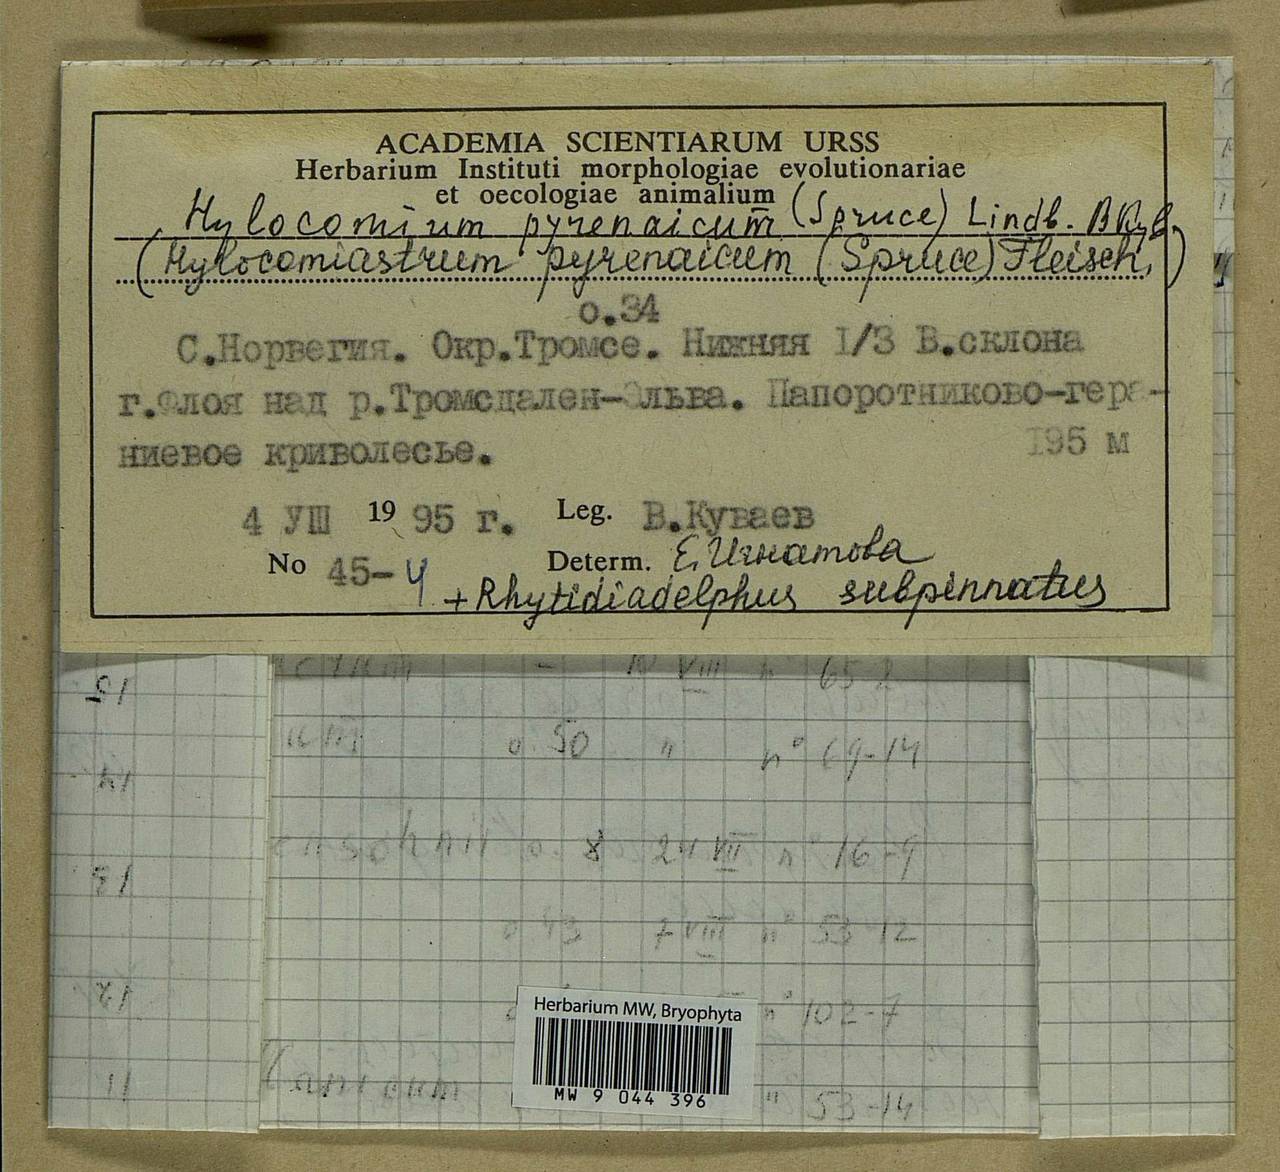 ACADEMIA SCIENTIARUM URSS
Herbarium Instituti morphologiae evolutionariae
et oecologiae animalium
Hylocomium pyrenaicum (Spruce) Lindb.
(Hylocomiastrum pyrenaicum (Spruce) Fleisch.)
о.34
С.Норвегия. Окр.Тромсе. Нижняя 1/3 В.склона
г.Флоя над р.Тромсдален-Эльва. Папоротниково-гера-
ниевое криволесье. 195 м
4 УШ 1995 г. Leg. В.Куваев
No 45-4 Determ. Е.Игнатова
+ Rhytidiadelphus subpinnatus
VIII n° 65-2
о 50 " n° 69-14
о. 8 24 VII n° 16-9
о 43 7 VIII n° 53-12
n° 102-7
" 53-14
Herbarium MW, Bryophyta
MW 9 044 396